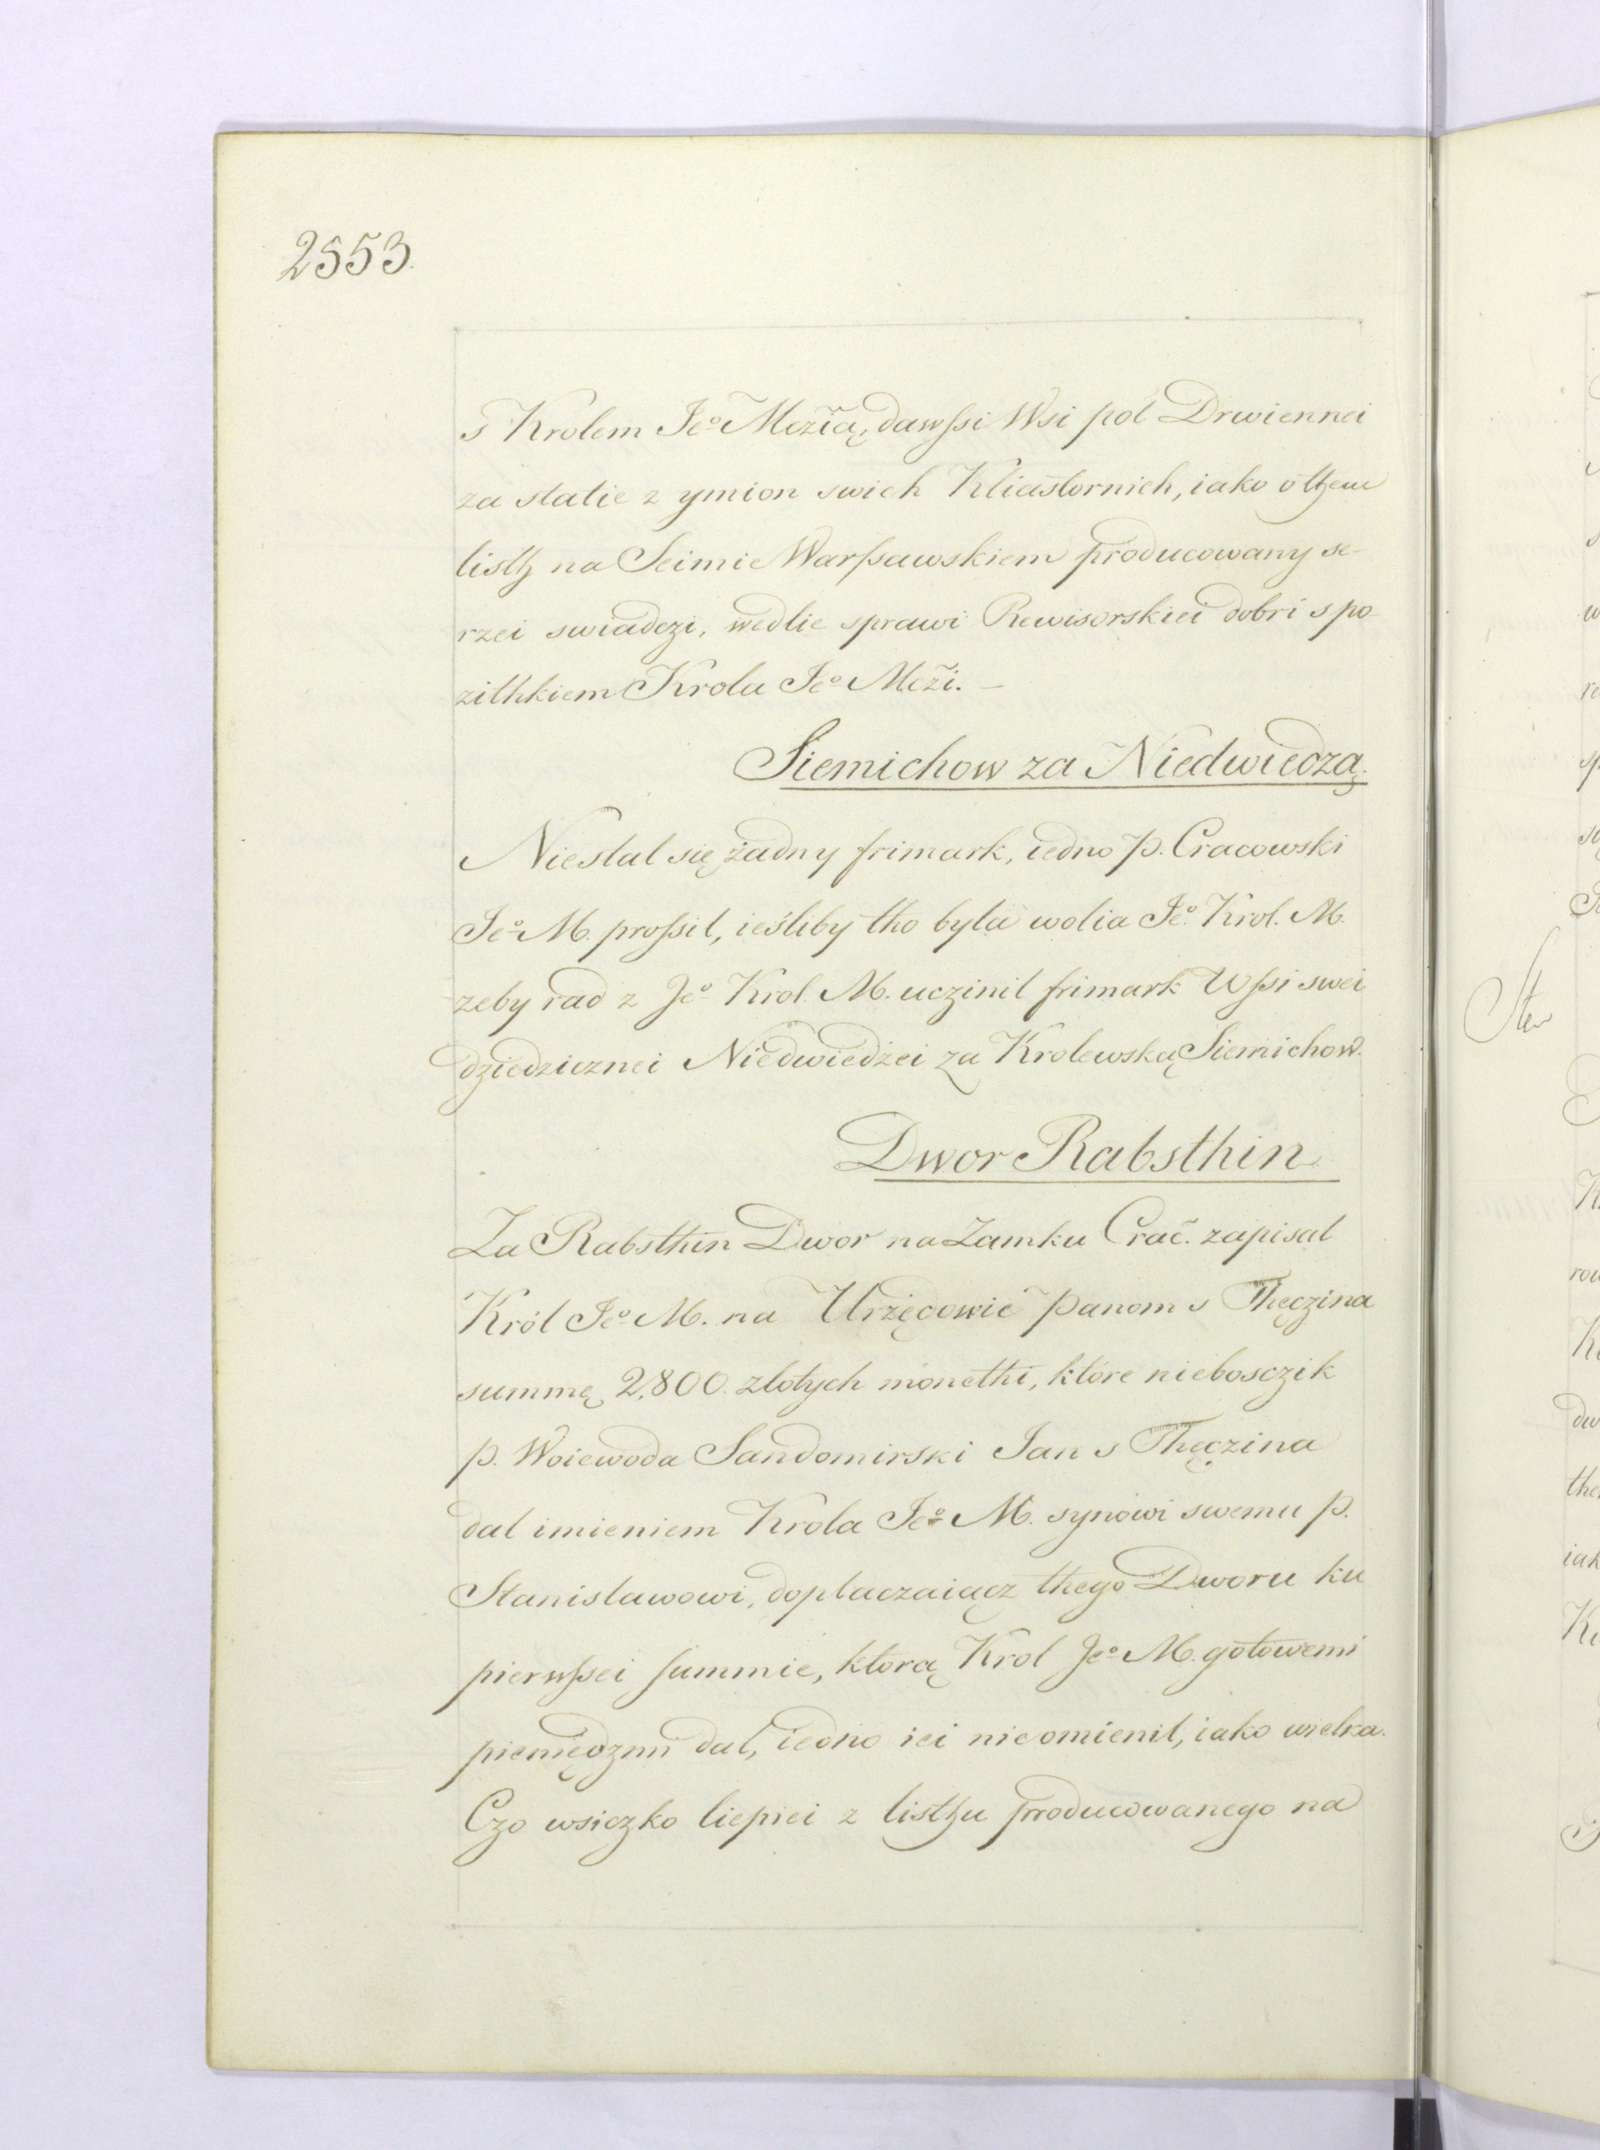 2553.
s Krolem Jeº Mczią, dawſsi Wsi pol Drwiennei
za statie z ymion swich Kliastornich, iako o tħem
listħ na Seimie Warſsawskiem producowany se-
rzei swiadczi, wedlie sprawi Rewisorskiei dobri s po
zithkiem Krola Jeº Mczi. —
Siemichow za Niedwiedzą.
Niestal się żadny frimark, iedno p. Cracowski
Jeº M. proſsil, ieśliby tho była wolia Jeº Krol. M.
zeby rad z Jeº Krol. M. uczinil frimark Wſsi swei
dziedzicznei Niedwiedżei za Krolewską Siemichow.
Dwor Rabsthin
Za Rabsthin Dwor na Zamku Crac. zapisal
Król Jeº M. na Urzęcowie panom s Thęczina
summę 2,800 złotych monethi, które niebosczik
p. Woiewoda Sandomirski Jan s Thęczina
dal imieniem Krola Jeº M. synowi swemu p.
Stanisławowi, doplaczaiącz thego Dworu ku
pierwſsei summie, ktorą Krol Jeº M. gotowemi
pieniędzmi dal, iedno iei nieomienil, iako wielka.
Czo wsiczko liepiei z listħu producowanego na